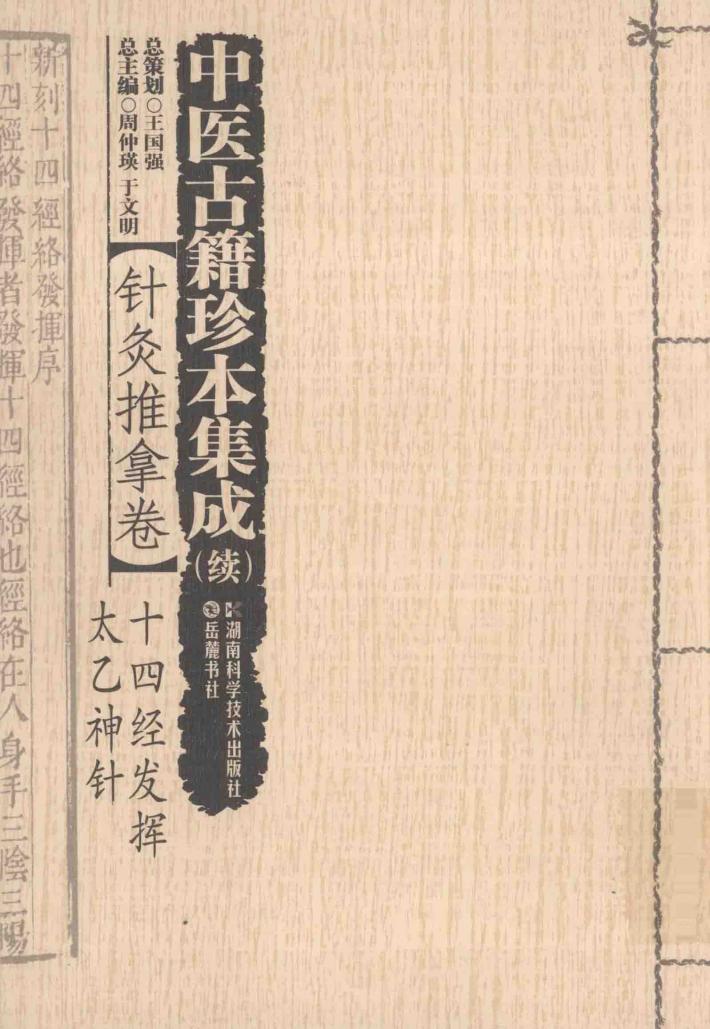 中医古籍珍本集成
（续）
湖南科学技术出版社
岳麓书社
总策划○王国强
总主编○周仲瑛 于文明
【针灸推拿卷】
十四经发挥
太乙神针
新刻十四經絡發揮序
十四經絡發揮者發揮十四經絡也經絡在人身手三陰三陽